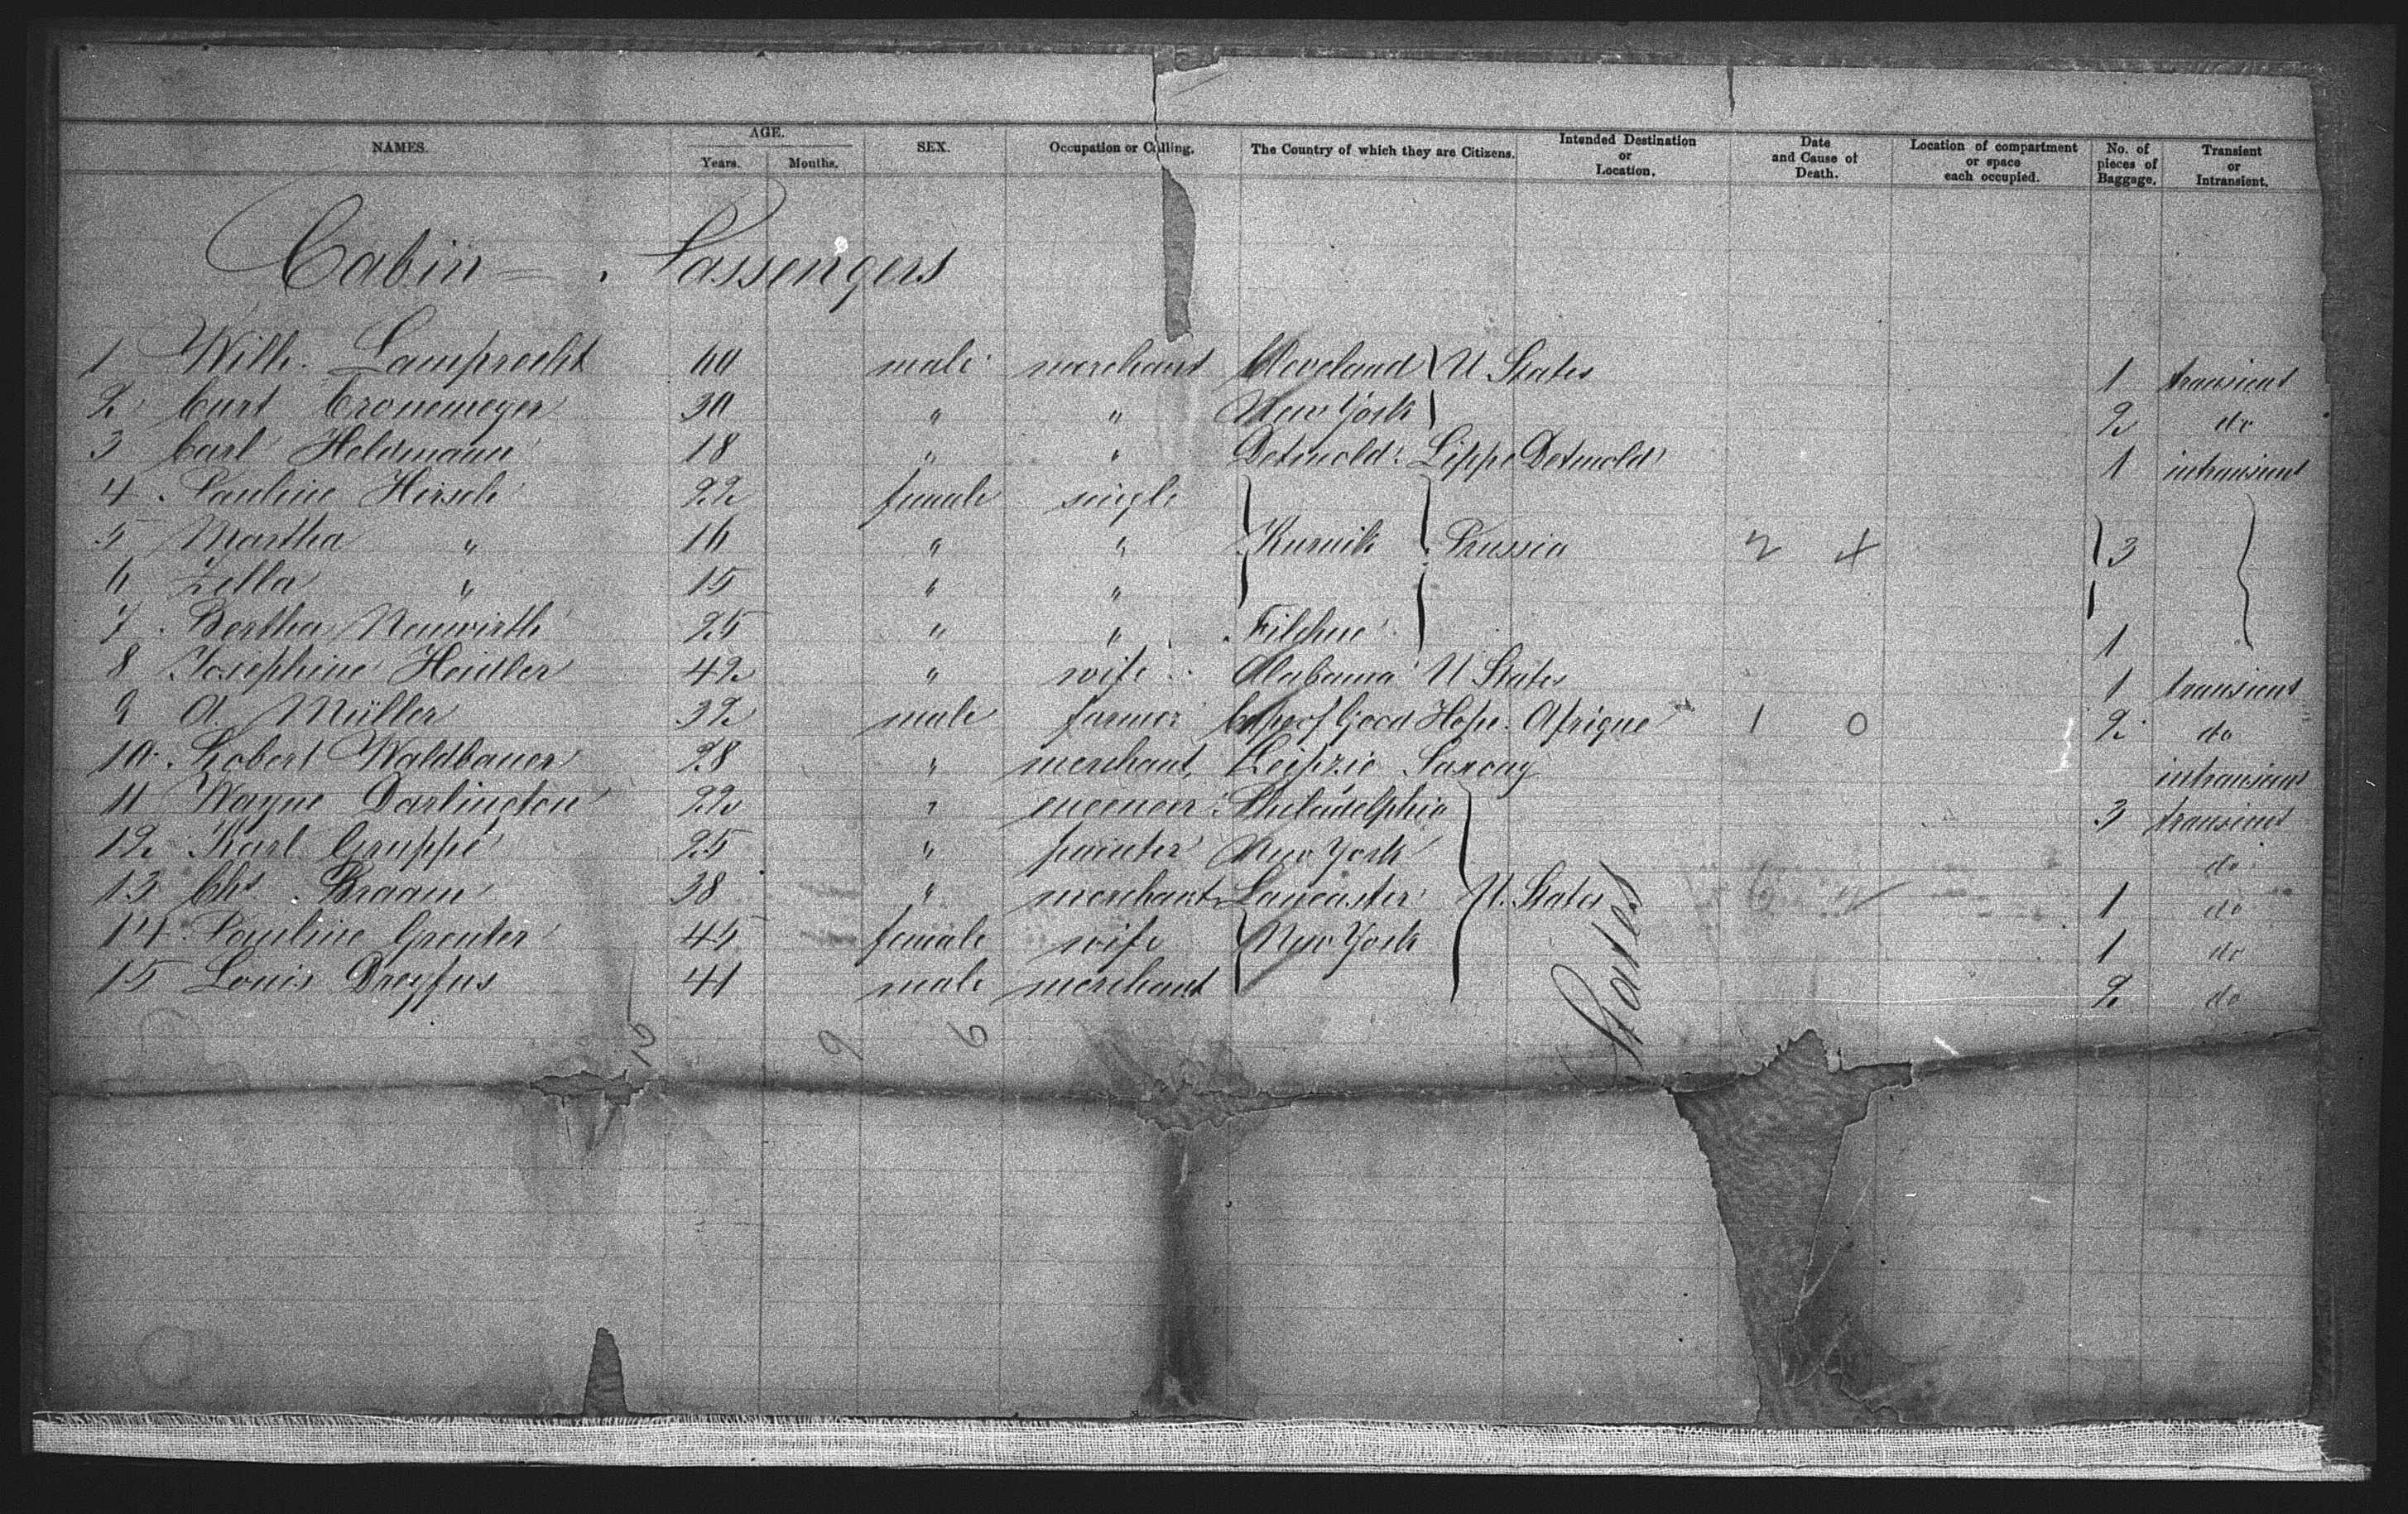 NAMES. AGE. Years. Months. SEX. Occupation or Calling. The Country of which they are Citizens. Intended Destination or Location. Date and Cause of Death. Location of compartment or space each occupied. No. of pieces of Baggage. Transient or Intransient.
Cabin Passengers
1 Wilh. Lamprecht male merchant Cleveland U States 1 transient
2 Curt Cronemeyer 30 " " New York 2 do
3 Carl Heldmann 18 " " Detmold Lippe Detmold 1 intransient
4 Pauline Hirsch 22 female single
5 Martha " 16 " " Kurnik Prussia 3
6 Zella " 15 " "
7 Bertha Neuwirth 25 " " Filehne 1
8 Josephine Heidler 42 " wife Alabama U States 1 transient
9 A. Müller 32 male farmer Cape of Good Hope. Afrique 1 0 2 do
10 Robert Waldbauer 28 " merchant Leipzic Saxony intransient
11 Wayne Darlington 22 " Philadelphia 3 transient
12 Karl Gruppé 25 " painter New York do
13 Chs Braam 38 " merchant Lancaster U. States 1 do
14 Pauline Greuter 45 female wife New York 1 do
15 Louis Dreyfus 41 male merchant 2 do
States